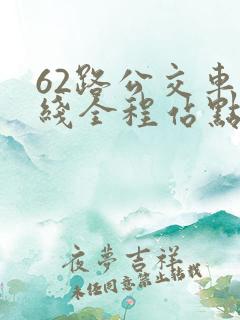 62路公交車
綫全程佔點
夜夢吉祥
未经同意禁止转载